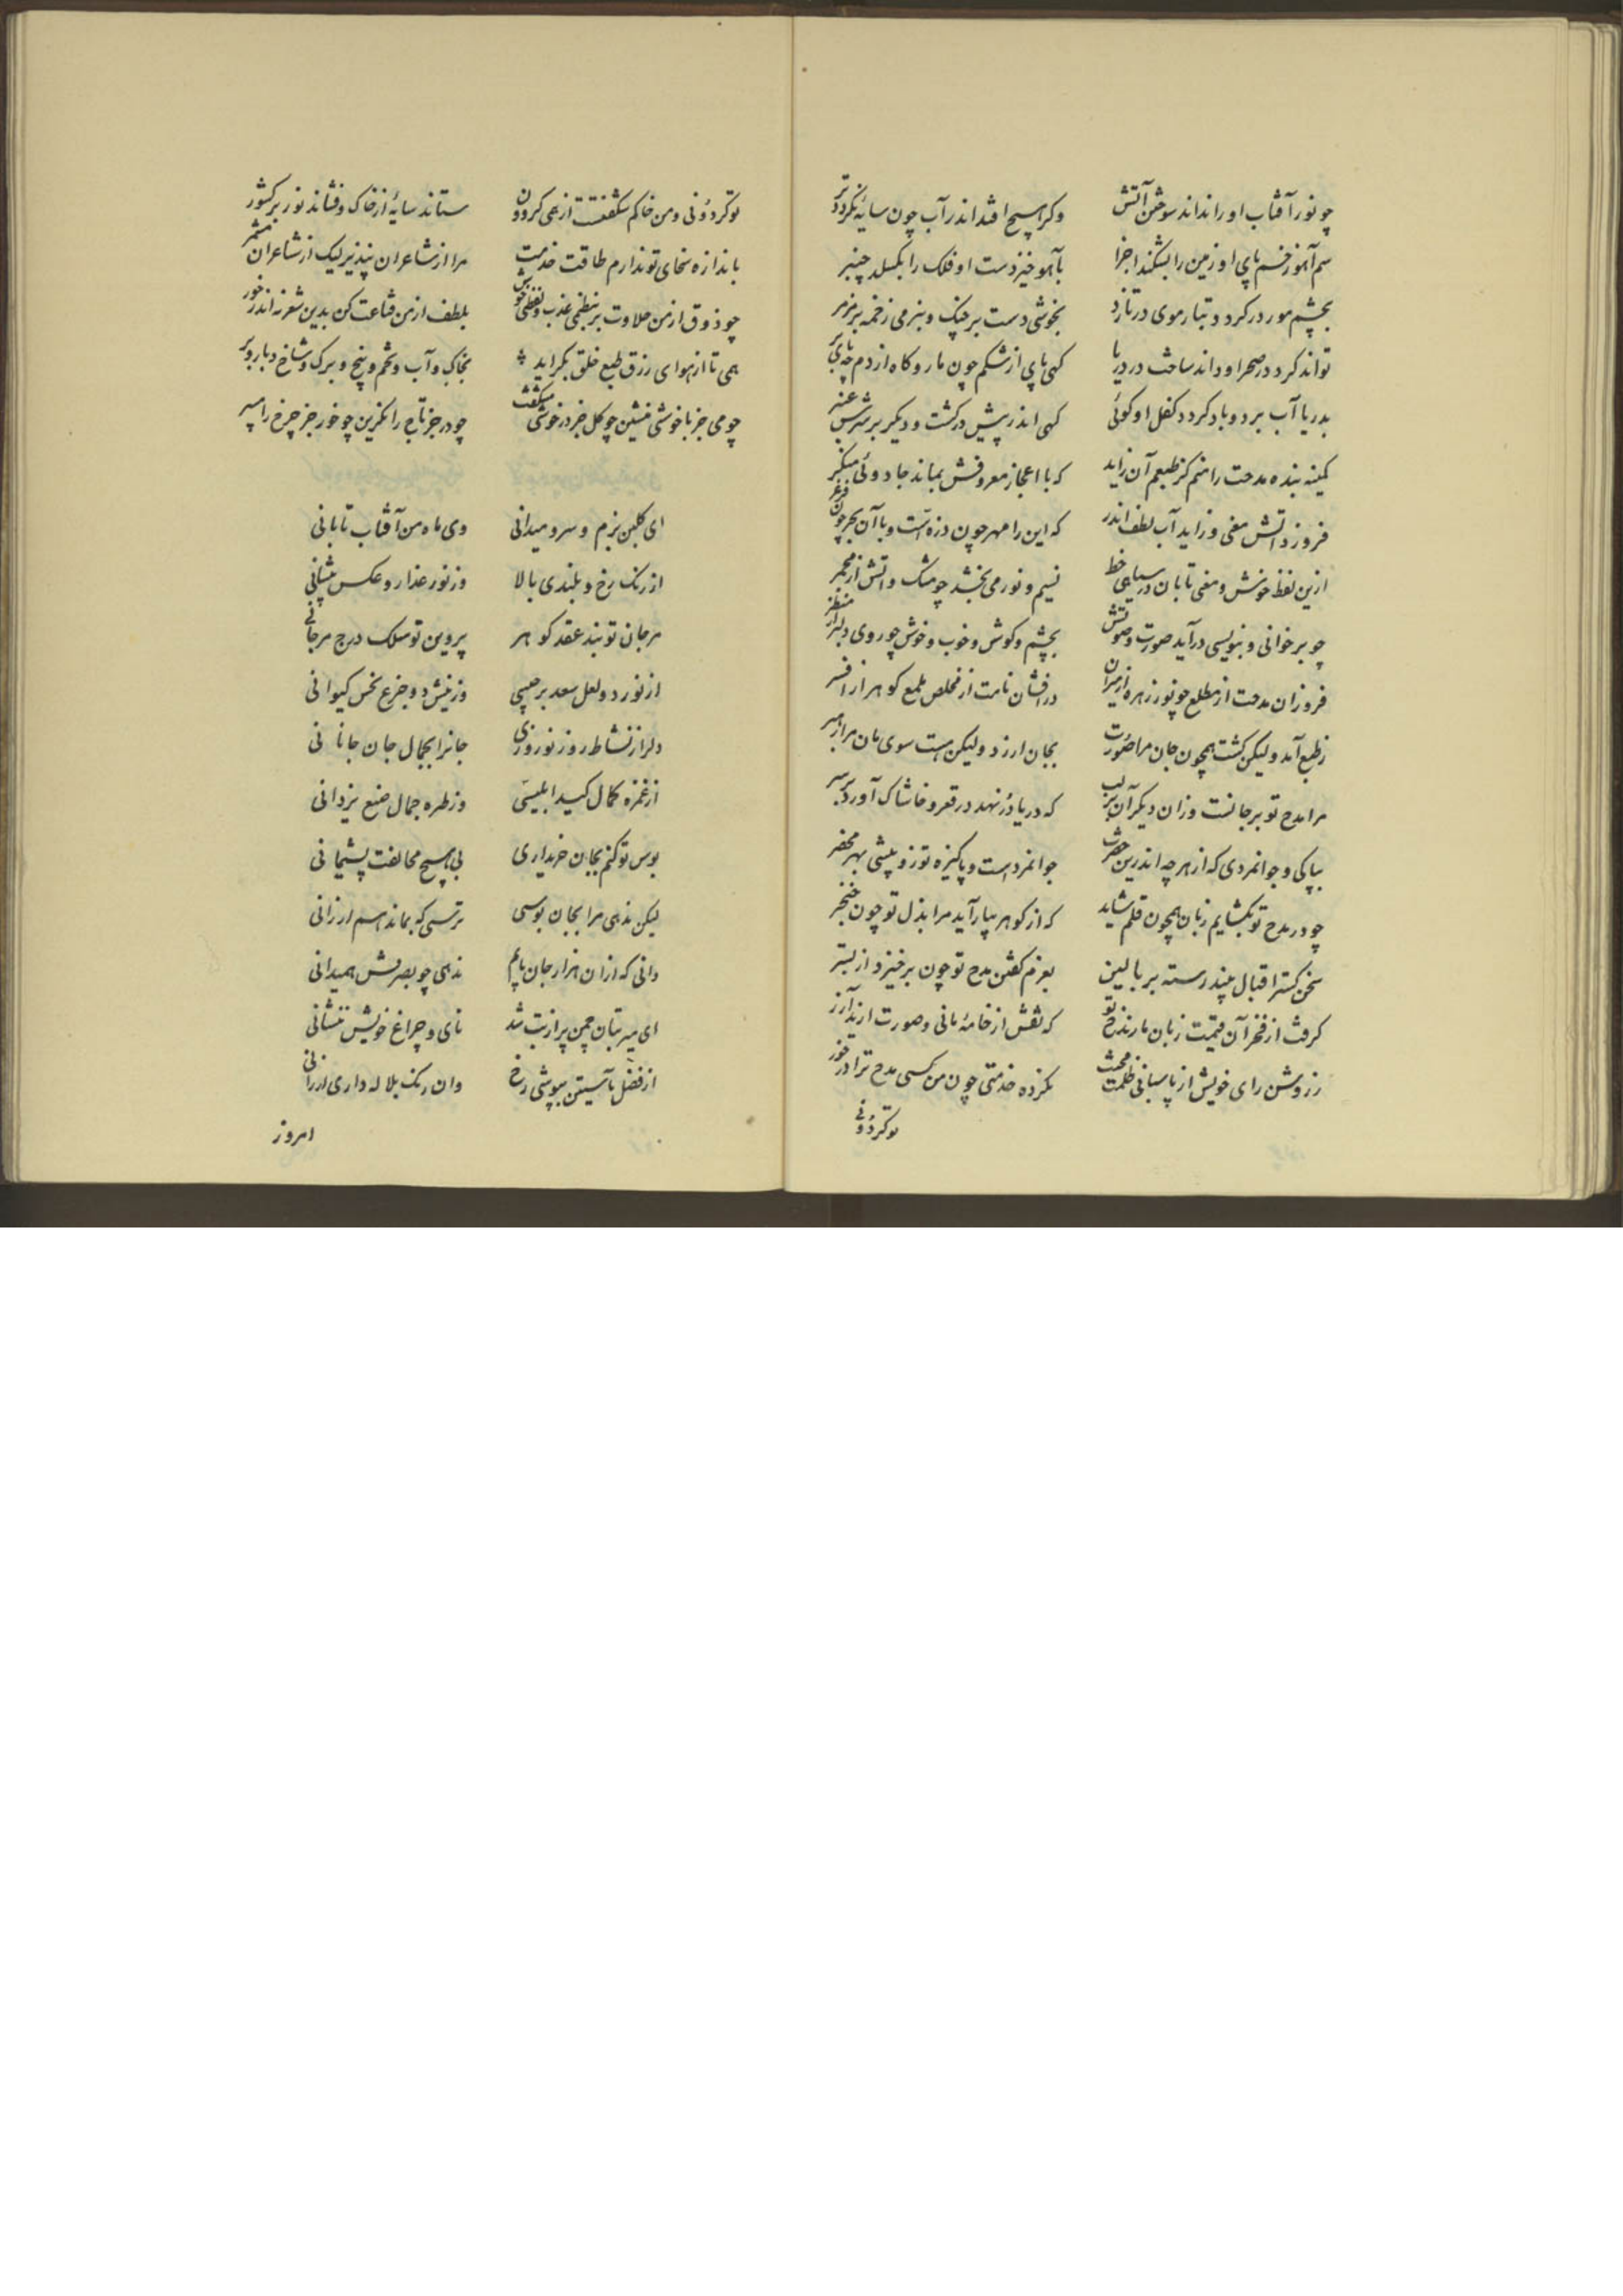 چو نور آفتاب او را نداند سوختن آتش وکر هیچ افتد اندر آب چون سایه نکردد تر
سم آهو زخم پای او زمین را بشکند اجزا بآهو خیز دست او فلک را بکسلد چنبر
بچشم مور در کردد و بتار موی در تازد بخوشی دست بر چنک و بنرمی زخمه بر مزمر
تواند کرد در صحرا و داند ساخت در دریا کهی پای از شکم چون مار و کاه از دم چه
بدریا آب برد و باد کردد کفل او کوئی کهی اندر پیش درکشت و دیکر بر سرش
کمینه بنده مدحت را منم کز طبعم آن زاید که با اعجاز معروفش بماند جادوئی منکر
فروزد آتش معنی و زاید آب لطف اندر که این را مهر چون ذره است و با آن بحر چون فرغر
ازین لفظ خوش و معنی تابان در سیاهی خط نسیم و نور می بخشد چو مشک و آتش از مجمر
چو بر خوانی و بنویسی در آید صورت و صوتش بچشم و کوش و خوب و خوش چو روی دلبر از منظر
فروزان مدحت از مطلع چو نور زهره از میزان درافشان نامت از مخلص بلمع کوهر از افسر
ز طبع آمد ولیکن کشت همچون جان مرا صورت بجان ارزد ولیکن هست سوی مان مرا
مرا مدح تو بر جانست وزان دیکران بر لب که دریا دُر نهد در قعر و خاشاک آورد بر سر
بپاکی و جوانمردی که از هر چه اندرین حضرت جوانمردست و پاکیزه توزو پیشی بهر محضر
چو در مدح تو بکشایم زبان همچون قلم شاید که از کوهر بیاراید مرا بذل تو چون خنجر
سخن کستر اقبال بیند رسته بر بالین بعزم کفتن مدح تو چون برخیزد از بستر
کرفت از فخر آن قیمت زبان ما ز مدح تو که نقش از خامهٔ مانی و صورت از آزر
ز روشن رای خویش از پاسبانی ظلمت محنت نکرده خدمتی چون من کسی مدح ترا در خور
توکردونی
توکردونی و من خاکم شکفتست از همی کردون ستاند سایهٔ از خاک و فشاند نور بر کشور
باندازه سخای تو ندارم طاقت خدمت مرا از شاعران بپذیر لیک از شاعران مشمر
چو ذوق از من حلاوت بر بنظمی عذب و لفظی خوش بلطف از من قناعت کن بدین شعر نه اندر خور
همی تا از هوای رزق طبع خلق بکراید بخاک و آب و تخم و بیخ و برک و شاخ و بار و بر
چو می جز با خوشی منشین چو کل جز در خوشی مشکفت چو در جز تاج را مکزین چو خور جز چرخ را مسپر
ای کلبن بزم و سرو میدانی وی ماه من آفتاب تابانی
از رنک رخ و بلندی بالا وز نور عذار و عکس پیشانی
مرجان تو بند عقد کوهر پروین تو سلک درج مرجانی
از نور دو لعل سعد برجیسی وز نیش دو جزع نحس کیوانی
دلرا ز نشاط روز نوروزی جانرا بجمال جان جانانی
از غمزه کمال کید ابلیسی وز طره جمال صنع یزدانی
بوس تو کنم بجان خریداری بی هیچ مخالفت پشیمانی
لیکن ندهی مرا بجان بوسی ترسی که بماندهم ارزانی
دانی که ازان هزار جان یابم ندهی چو بصرفش همیدانی
ای میر بتان چمن پر از بت شد نای و چراغ خویش ننشانی
از فضل بآستین بپوشی رخ وان رنک بلاله داری ارزانی
امروز